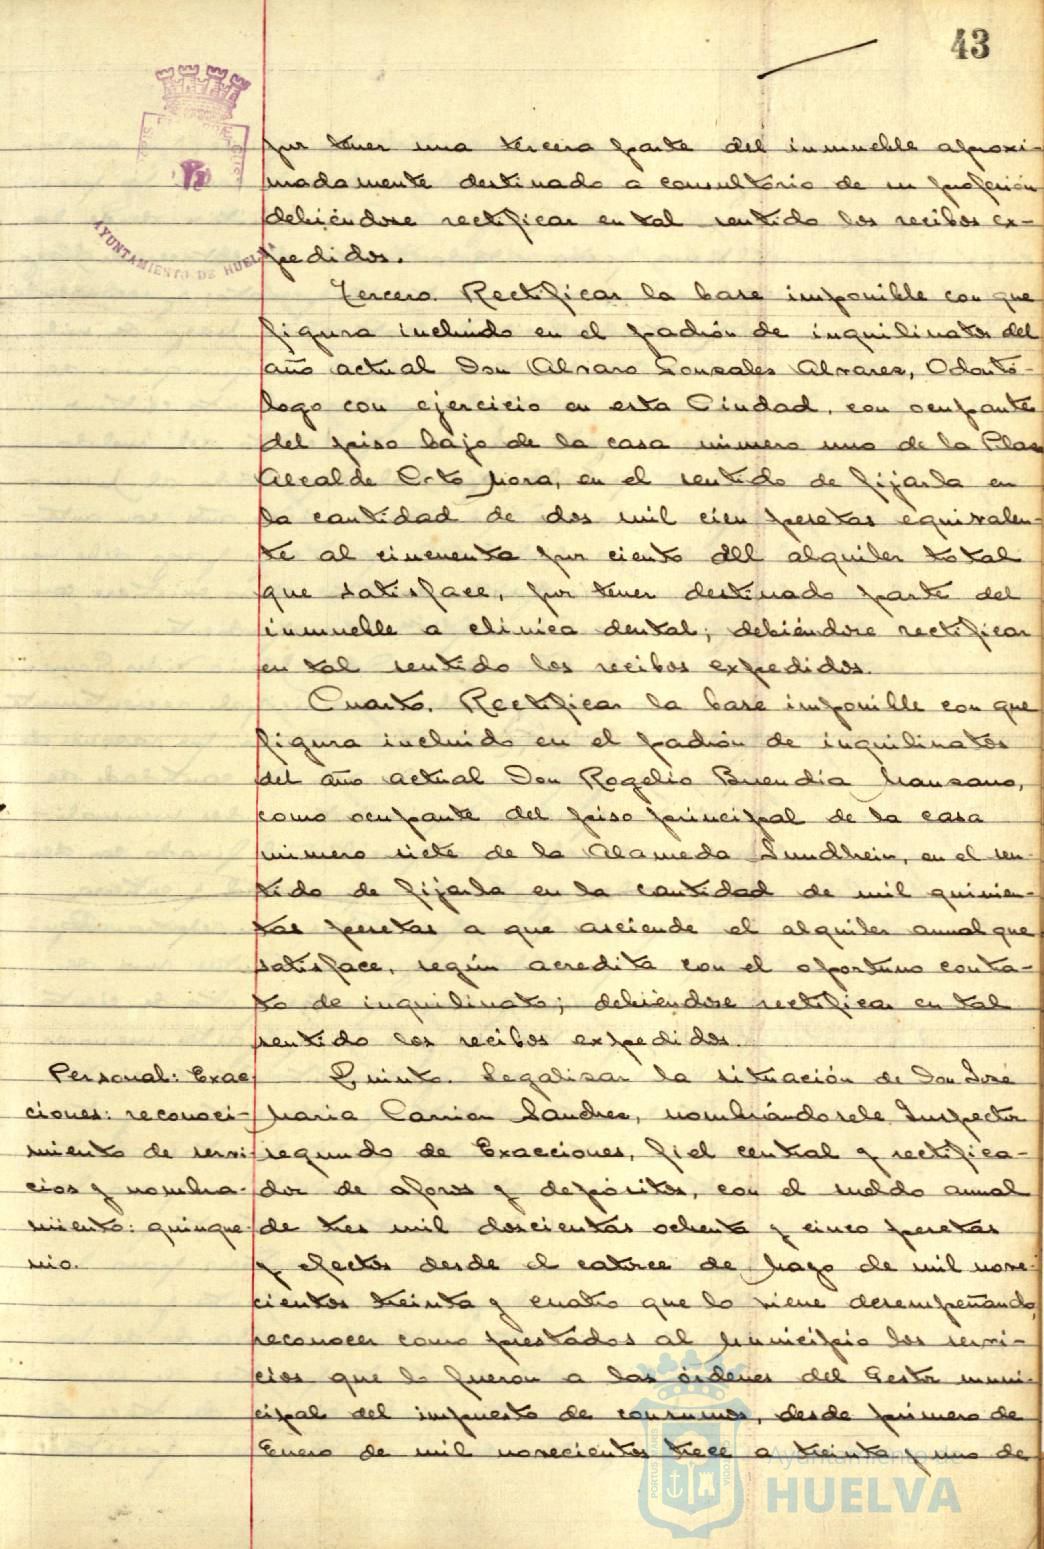 43
AYUNTAMIENTO DE HUELVA
por tener una tercera parte del inmueble aproxi-
madamente destinado a consultorio de su profesión
debiéndose rectificar en tal sentido los recibos ex-
pedidos.
Tercero. Rectificar la base imponible con que
figura incluido en el padrón de inquilinatos del
año actual Don Alvaro Gonzales Alvarez, Odontó-
logo con ejercicio en esta Ciudad, con ocupante
del piso bajo de la casa número uno de la Plaza
Alcalde Coto Mora, en el sentido de fijarla en
la cantidad de dos mil cien pesetas equivalen-
te al cincuenta por ciento del alquiler total
que satisface, por tener destinado parte del
inmueble a clínica dental; debiéndose rectificar
en tal sentido los recibos expedidos.
Cuarto. Rectificar la base imponible con que
figura incluido en el padrón de inquilinatos
del año actual Don Rogelio Buendía Manzano,
como ocupante del piso principal de la casa
número siete de la Alameda Sundhein, en el sen-
tido de fijarla en la cantidad de mil quinien-
tas pesetas a que asciende el alquiler anual que
satisface, según acredita con el oportuno contra-
to de inquilinato; debiéndose rectificar en tal
sentido los recibos expedidos.
Personal: Exac
ciones: reconoci-
miento de servi
cios y nombra-
miento: quinque
nio.
Quinto. Legalizar la situación de Don José
Maria Carrion Sanchez, nombrándosele Inspector
segundo de Exacciones, fiel central y rectifica-
dor de aforos y depósitos, con el sueldo anual
de tres mil doscientas ochenta y cinco pesetas
y efectos desde el catorce de Mayo de mil nove-
cientos treinta y cuatro que lo viene desempeñando,
reconocer como prestados al Municipio los servi-
cios que lo fueron a las órdenes del Gestor muni-
cipal del impuesto de consumos, desde primero de
Enero de mil novecientos trece a treinta y uno de
Ayuntamiento de
HUELVA